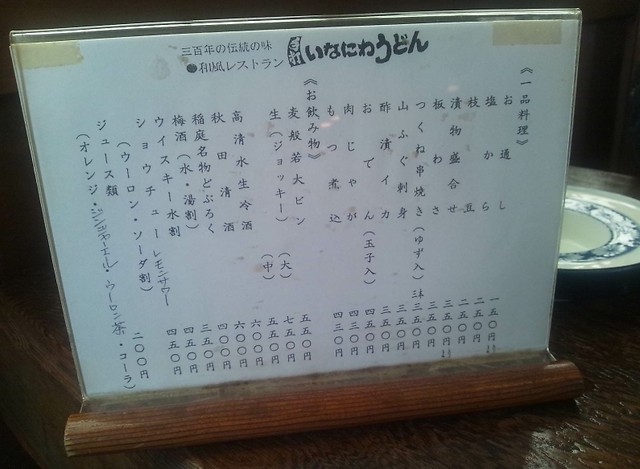 三百年の伝統の味
●和風レストラン いなにわうどん
《一品料理》
お通し 一五〇円
塩から 二五〇円
枝豆 二五〇円
漬物盛合せ 三五〇円
板わさ 三五〇円
つくね串焼き(ゆず入)三本 三三〇円
山ふぐ刺身 三三〇円
酢漬イカ 三五〇円
おでん(玉子入) 四五〇円
肉じゃが 四三〇円
もつ煮込 四三〇円
《お飲み物》
麦般若大ビン 五五〇円
生(ジョッキー) (大) 七五〇円
(中) 五五〇円
高清水生冷酒 六〇〇円
秋田清酒 六〇〇円
稲庭名物どぶろく 四〇〇円
梅酒(水・湯割) 三五〇円
ウイスキー水割 四五〇円
ショウチュー レモンサワー 四五〇円
(ウーロン・ソーダ割)
ジュース類 二〇〇円
(オレンジ・ジンジャーエール・ウーロン茶・コーラ)